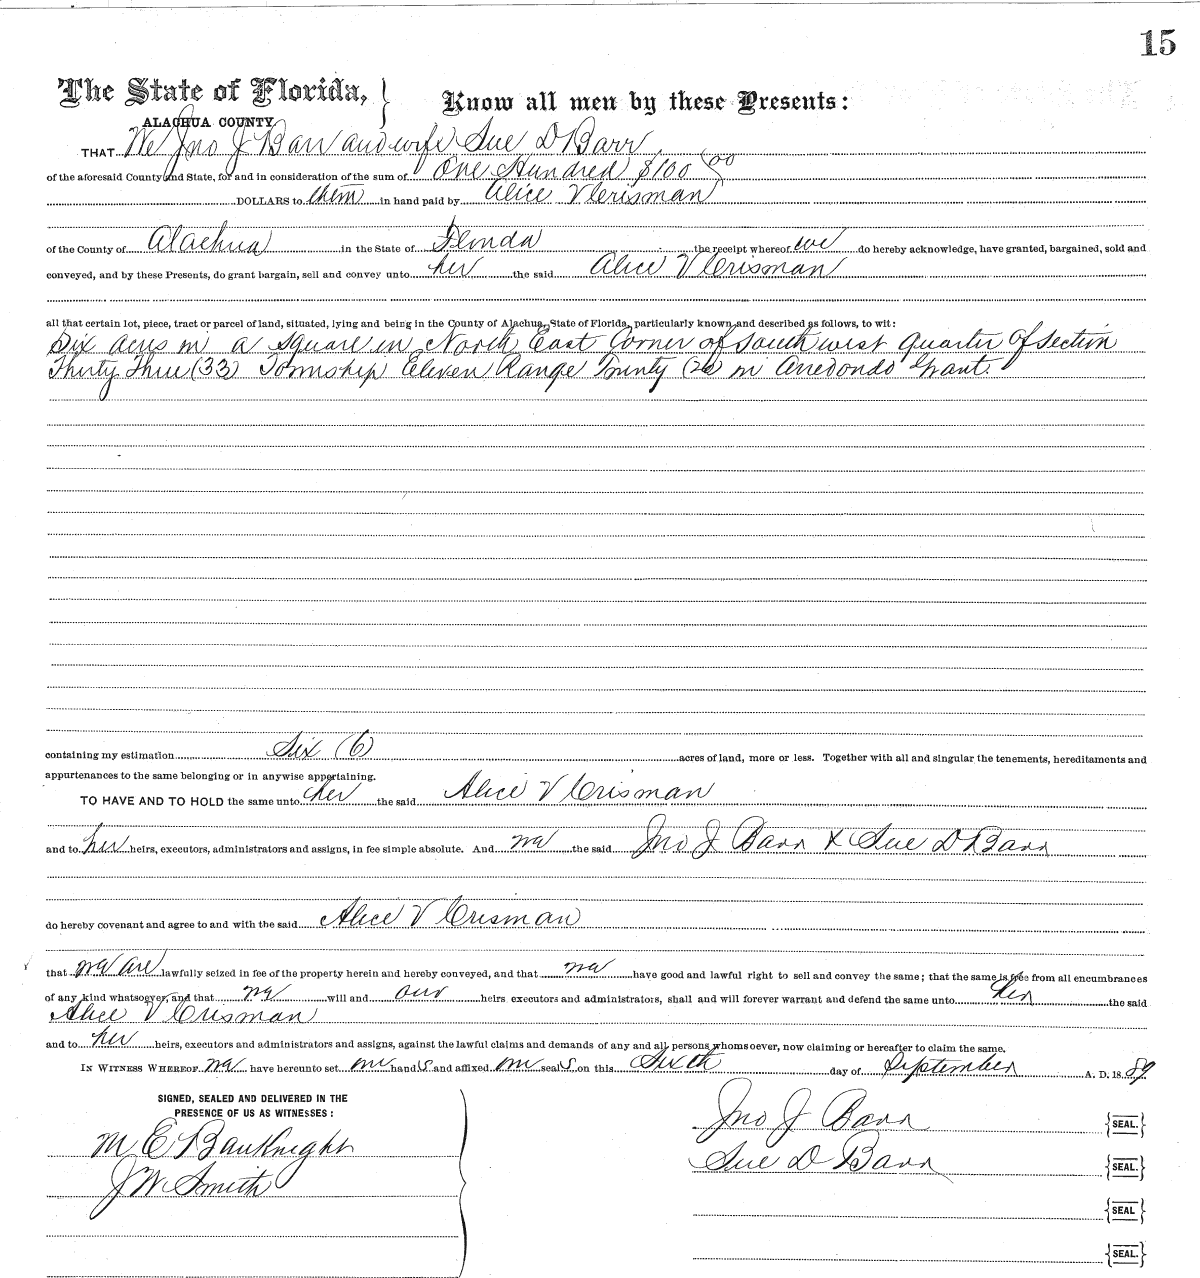 15
The State of Florida, } Know all men by these Presents:
ALACHUA COUNTY
THAT We Jno J Barr and wife Sue D Barr
of the aforesaid County and State, for and in consideration of the sum of One Hundred $100 00
DOLLARS to them in hand paid by Alice V Crisman
of the County of Alachua in the State of Florida the receipt whereof we do hereby acknowledge, have granted, bargained, sold and
conveyed, and by these Presents, do grant bargain, sell and convey unto her the said Alice V Crisman
all that certain lot, piece, tract or parcel of land, situated, lying and being in the County of Alachua, State of Florida, particularly known and described as follows, to wit:
Six acres in a square in North East Corner of South west quarter of Section
Thirty Three (33) Township Eleven Range Twenty (20) in Arredondo Grant.
containing my estimation Six (6) acres of land, more or less. Together with all and singular the tenements, hereditaments and
appurtenances to the same belonging or in anywise appertaining.
TO HAVE AND TO HOLD the same unto her the said Alice V Crisman
and to her heirs, executors, administrators and assigns, in fee simple absolute. And we the said Jno J Barr & Sue D Barr
do hereby covenant and agree to and with the said Alice V Crisman
that we are lawfully seized in fee of the property herein and hereby conveyed, and that we have good and lawful right to sell and convey the same; that the same is free from all encumbrances
of any kind whatsoever, and that we will and our heirs executors and administrators, shall and will forever warrant and defend the same unto her the said
Alice V Crisman
and to her heirs, executors and administrators and assigns, against the lawful claims and demands of any and all persons whomsoever, now claiming or hereafter to claim the same.
IN WITNESS WHEREOF we have hereunto set our hands and affixed our seals on this Sixth day of September A. D. 1889
SIGNED, SEALED AND DELIVERED IN THE
PRESENCE OF US AS WITNESSES:
M E Bauknight
J W Smith
Jno J Barr {SEAL.}
Sue D Barr {SEAL.}
{SEAL}
{SEAL.}